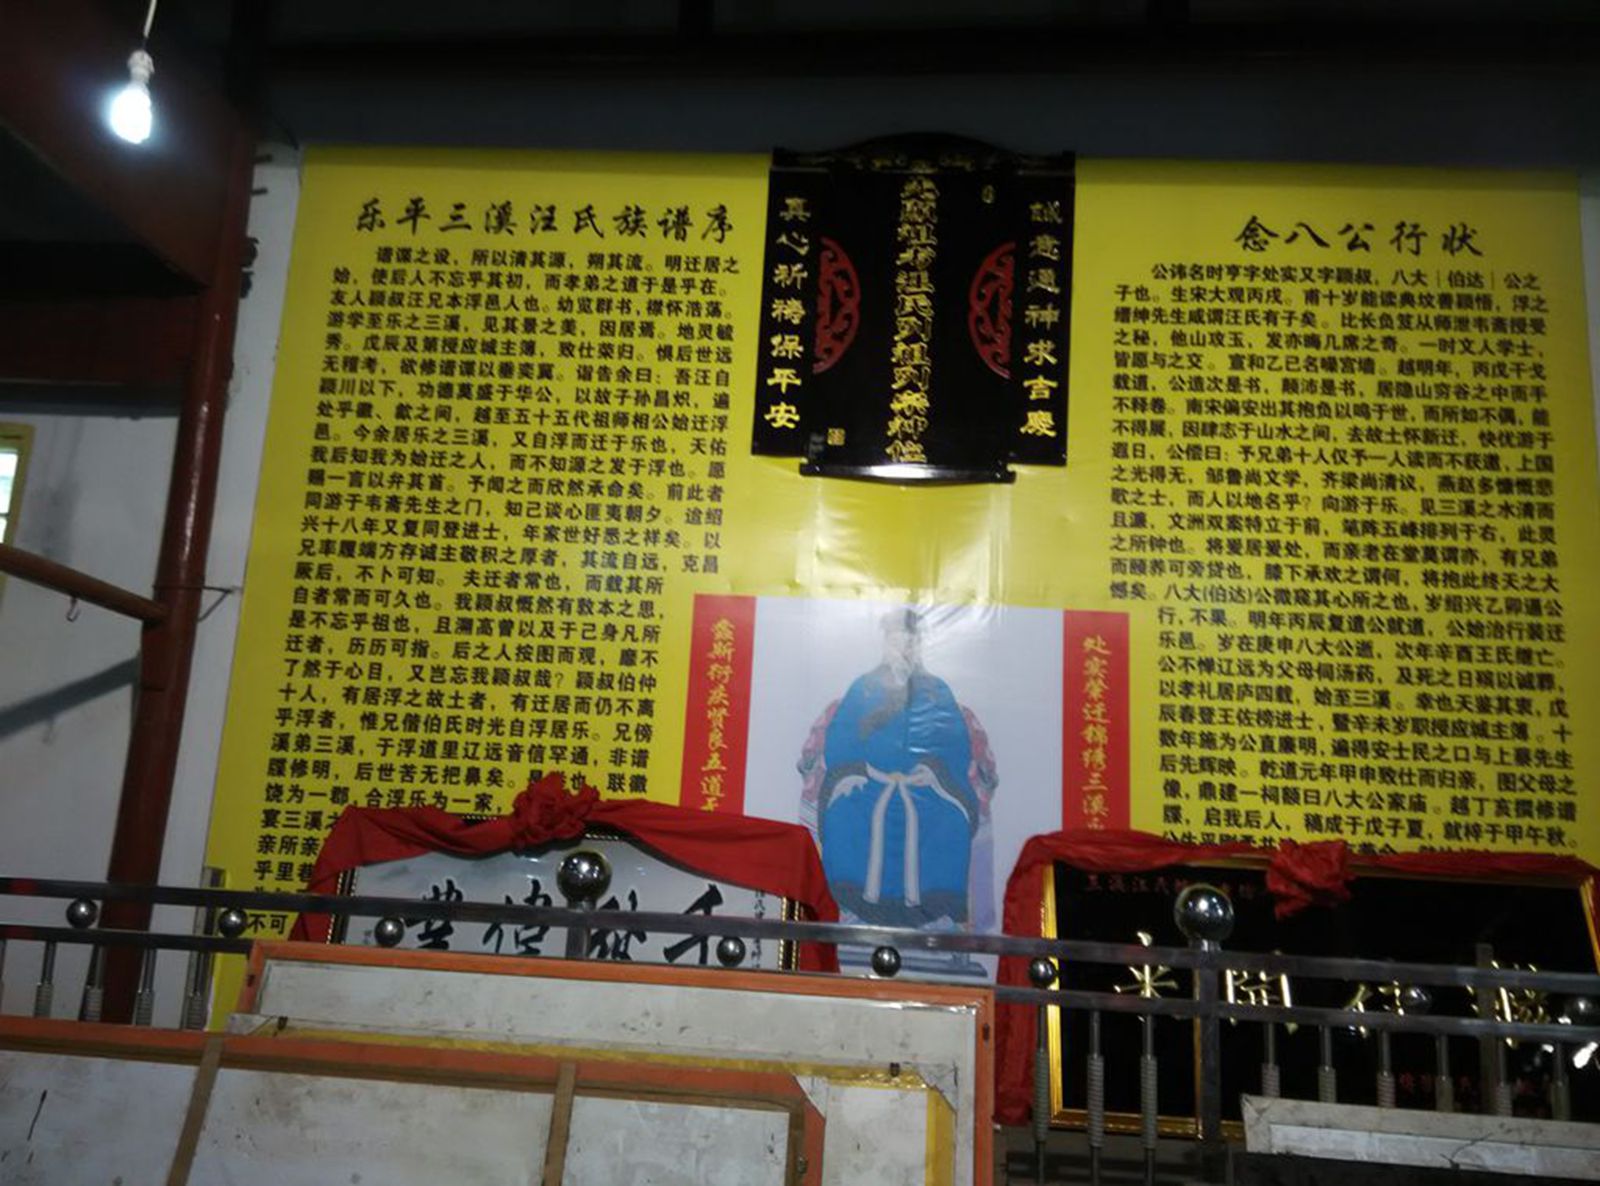 乐平三溪汪氏族谱序
谱谍之设，所以清其源，朔其流。明迁居之
始，使后人不忘乎其初，而孝弟之道于是乎在。
友人颖叔汪兄本浮邑人也。幼览群书，襟怀浩荡。
游学至乐之三溪，见其景之美，因居焉。地灵毓
秀。戊辰及第授应城主簿，致仕荣归。惧后世远
无稽考，欲修谱谍以垂奕冀。谐告余曰：吾汪自
颖川以下，功德莫盛于华公，以故子孙昌炽，遍
处乎徽、歙之间，越至五十五代祖师相公始迁浮
邑。今余居乐之三溪，又自浮而迁于乐也，天佑
我后知我为始迁之人，而不知源之发于浮也。愿
赐一言以弁其首。予闻之而欣然承命矣。前此者
同游于韦斋先生之门，知己谈心匪夷朝夕。迨绍
兴十八年又复同登进士，年家世好悉之祥矣。以
兄率履端方存诚主敬积之厚者，其流自远，克昌
厥后，不卜可知。夫迁者常也，而载其所
自者常而可久也。我颖叔慨然有敦本之思，
是不忘乎祖也，且溯高曾以及于己身凡所
迁者，历历可指。后之人按图而观，靡不
了然于心目，又岂忘我颖叔哉？颖叔伯仲
十人，有居浮之故土者，有迁居而仍不离
乎浮者，惟兄偕伯氏时光自浮居乐。兄傍
溪弟三溪，于浮道里辽远音信罕通，非谱
牒修明，后世苦无把鼻矣。是 也，联徽
饶为一郡，合浮乐为一家，
宴三溪之
亲所亲
乎里巷
不可
真心祈祷保平安
汪氏列祖列宗神位
誠意通神求吉慶
念八公行状
公讳名时亨字处实又字颖叔，八大｜伯达｜公之
子也。生宋大观丙戌。甫十岁能读典坟善颖悟，浮之
缙绅先生咸谓汪氏有子矣。比长负笈从师泄韦斋授受
之秘，他山攻玉，发亦晦几席之奇。一时文人学士，
皆愿与之交。宣和乙已名噪宫墙。越明年，丙戊干戈
载道，公造次是书，颠沛是书，居隐山穷谷之中而手
不释卷。南宋偏安出其抱负以鸣于世，而所如不偶，能
不得展，因肆志于山水之间，去故土怀新迁，快优游于
遐日，公偿曰：予兄弟十人仅予一人读而不获遨，上国
之光得无，邹鲁尚文学，齐梁尚清议，燕赵多慷慨悲
歌之士，而人以地名乎？向游于乐。见三溪之水清而
且濂，文洲双案特立于前，笔阵五峰排列于右，此灵
之所钟也。将爰居爰处，而亲老在堂莫谓亦，有兄弟
而颐养可旁贷也，膝下承欢之谓何，将抱此终天之大
憾矣。八大(伯达)公微窥其心所之也，岁绍兴乙卯遣公
行，不果。明年丙辰复遣公就道，公始治行装迁
乐邑。岁在庚申八大公逝，次年辛酉王氏继亡。
公不惮辽远为父母伺汤药，及死之日殡以诚葬，
以孝礼居庐四载，始至三溪。幸也天鉴其衷，戊
辰春登王佐榜进士，暨辛未岁职授应城主簿。十
数年施为公直廉明，遍得安士民之口与上蔡先生
后先辉映。乾道元年甲申致仕而归亲，图父母之
像，鼎建一祠额曰八大公家庙。越丁亥撰修谱
牒，启我后人，稿成于戊子夏，就梓于甲午秋。
螽斯衍庆贤良五道
处实肇迁锦绣三溪
千秋
三溪汪氏